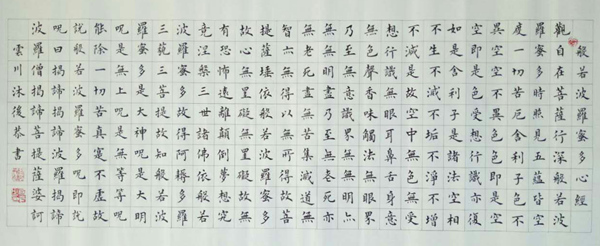 般若波羅蜜多心經
觀自在菩薩行深般若波
羅蜜多時照見五蘊皆空
度一切苦厄舍利子色不
異空空不異色色即是空
空即是色受想行識亦復
如是舍利子是諸法空相
不生不滅不垢不淨不增
不減是故空中無色無受
想行識無眼耳鼻舌身意
無色聲香味觸法無眼界
乃至無意識界無無明亦
無無明盡乃至無老死亦
無老死盡無苦集滅道無
智亦無得以無所得故菩
提薩埵依般若波羅蜜多
故心無罣礙無罣礙故無
有恐怖遠離顛倒夢想究
竟涅槃三世諸佛依般若
波羅蜜多故得阿耨多羅
三藐三菩提故知般若波
羅蜜多是大神呪是大明
呪是無上呪是無等等呪
能除一切苦真實不虛故
說般若波羅蜜多呪即說
呪曰揭諦揭諦波羅揭諦
波羅僧揭諦菩提薩婆訶
雲川沐後恭書